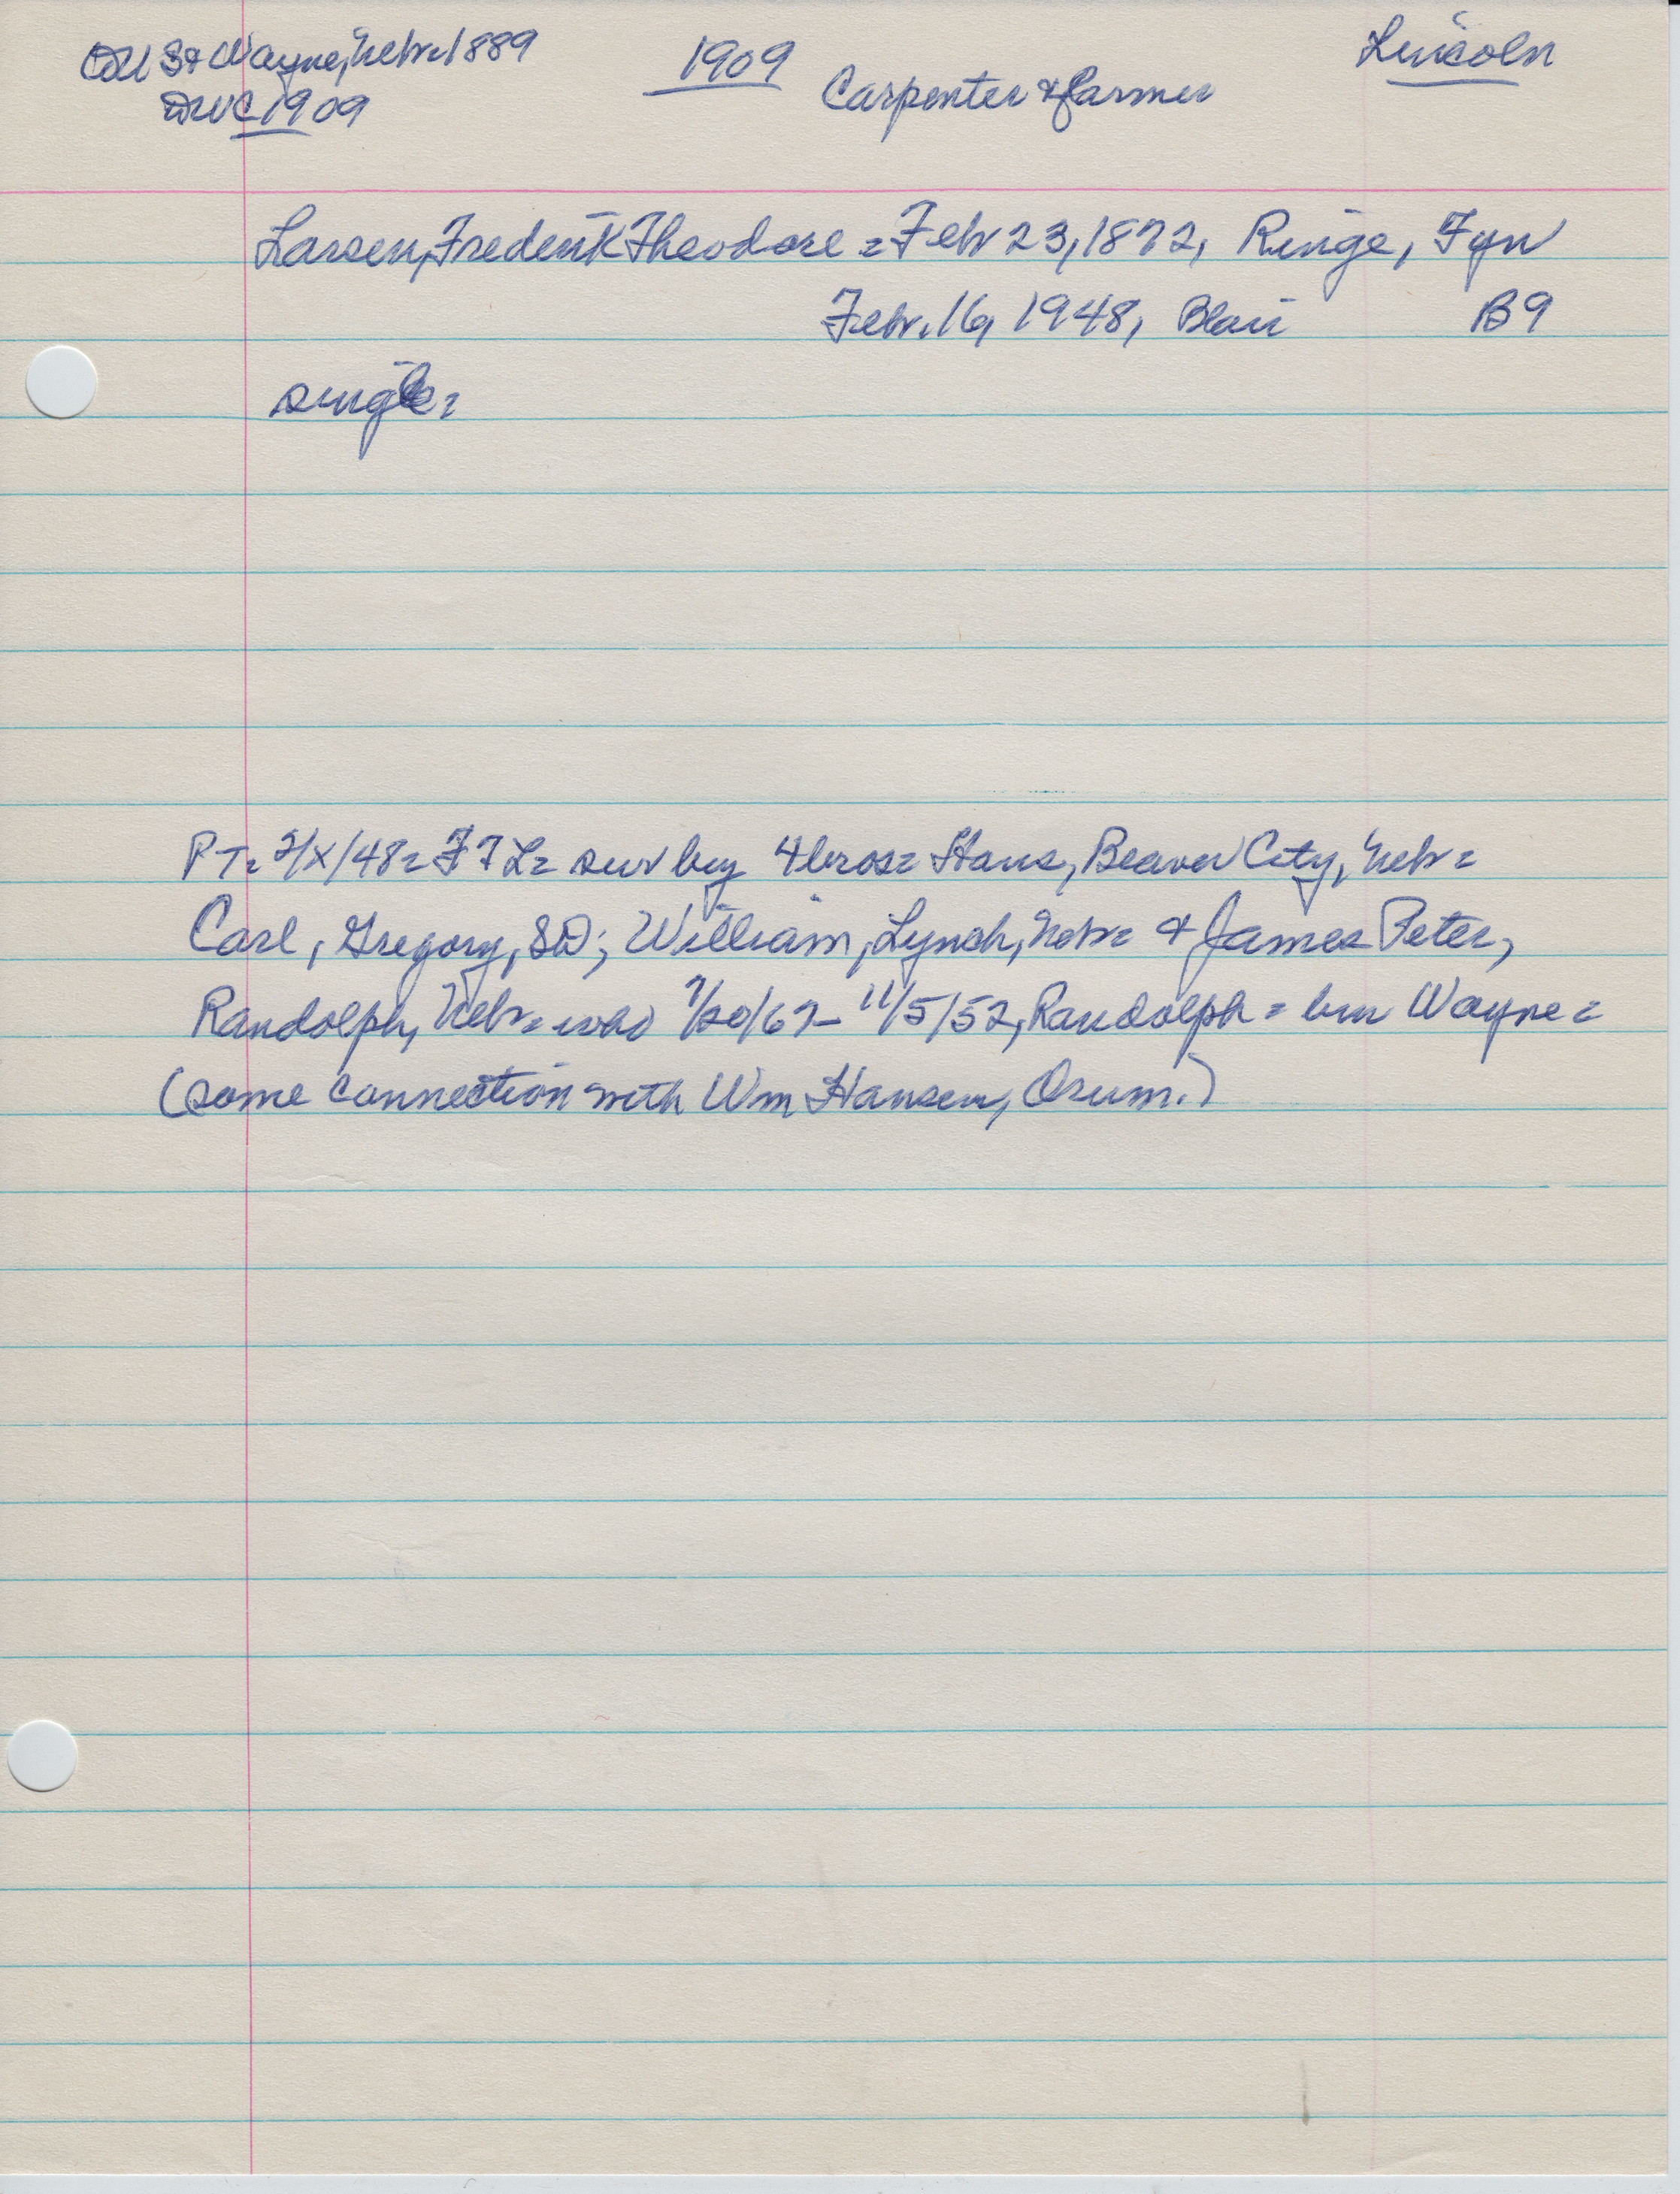 to US & Wayne, Nebr. 1889
1909
Lincoln
DWC 1909
Carpenter & farmer
Larsen, Frederik Theodore = Febr 23, 1872, Ringe, Fyn
Febr. 16, 1948, Blair B9
single =
PT = 2/x/48 = FTL = surv by 4 bros = Hans, Beaver City, Nebr =
Carl, Gregory, SD; William, Lynch, Nebr = & James Peter,
Randolph, Nebr = who 9/20/67 - 11/5/52, Randolph = bur Wayne =
(some connection with Wm Hansen, Orum.)